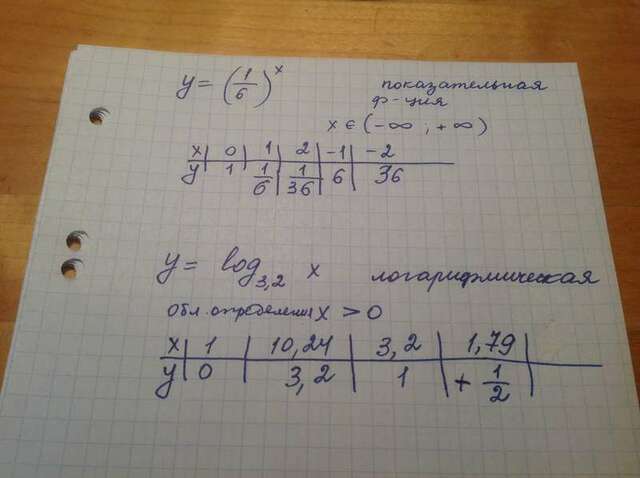 y = (1/6)^x
показательная
ф-ция
x ∈ (-∞, +∞)
x | 0 | 1 | 2 | -1 | -2
y | 1 | 1/6 | 1/36 | 6 | 36
y = log_3,2 x логарифмическая
обл. определения x > 0
x | 1 | 10,24 | 3,2 | 1,79 |
y | 0 | 3,2 | 1 | + 1/2 |